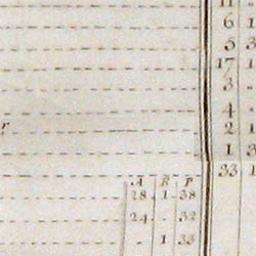 11 "
6 1
5 3
17 1
3 "
4 "
r
2 1
1 3
33 1
A R P
28 1 38
24 . 32
. 1 33